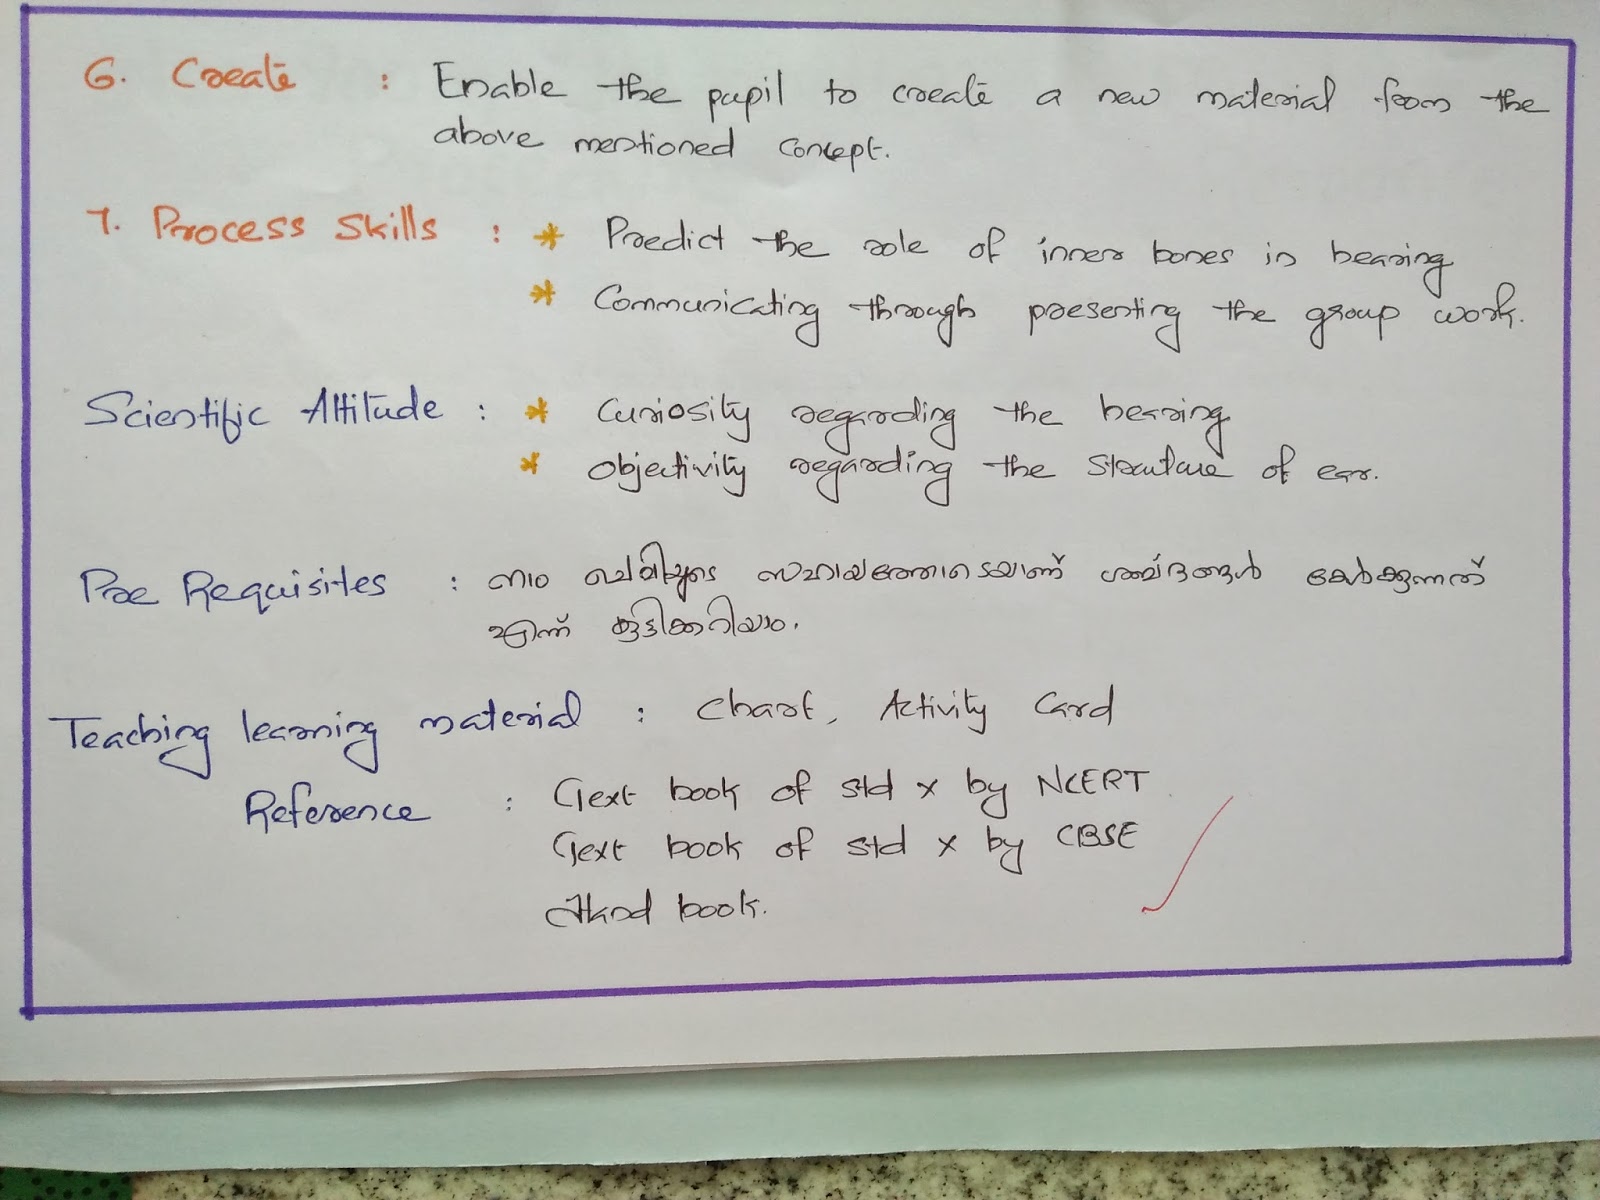 6. Create : Enable the pupil to create a new material from the
above mentioned concept.
7. Process Skills : * Predict the role of inner bones in hearing
* Communicating through presenting the group work.
Scientific Attitude : * Curiosity regarding the hearing
* Objectivity regarding the structure of ear.
Pre Requisites : നാം ചെവിയുടെ സഹായത്തോടെയാണ് ശബ്ദങ്ങൾ കേൾക്കുന്നത്
എന്ന് കുട്ടിക്കറിയാം.
Teaching learning material : Chart, Activity Card
Reference : Text book of std X by NCERT
Text book of std X by CBSE
Hand book.